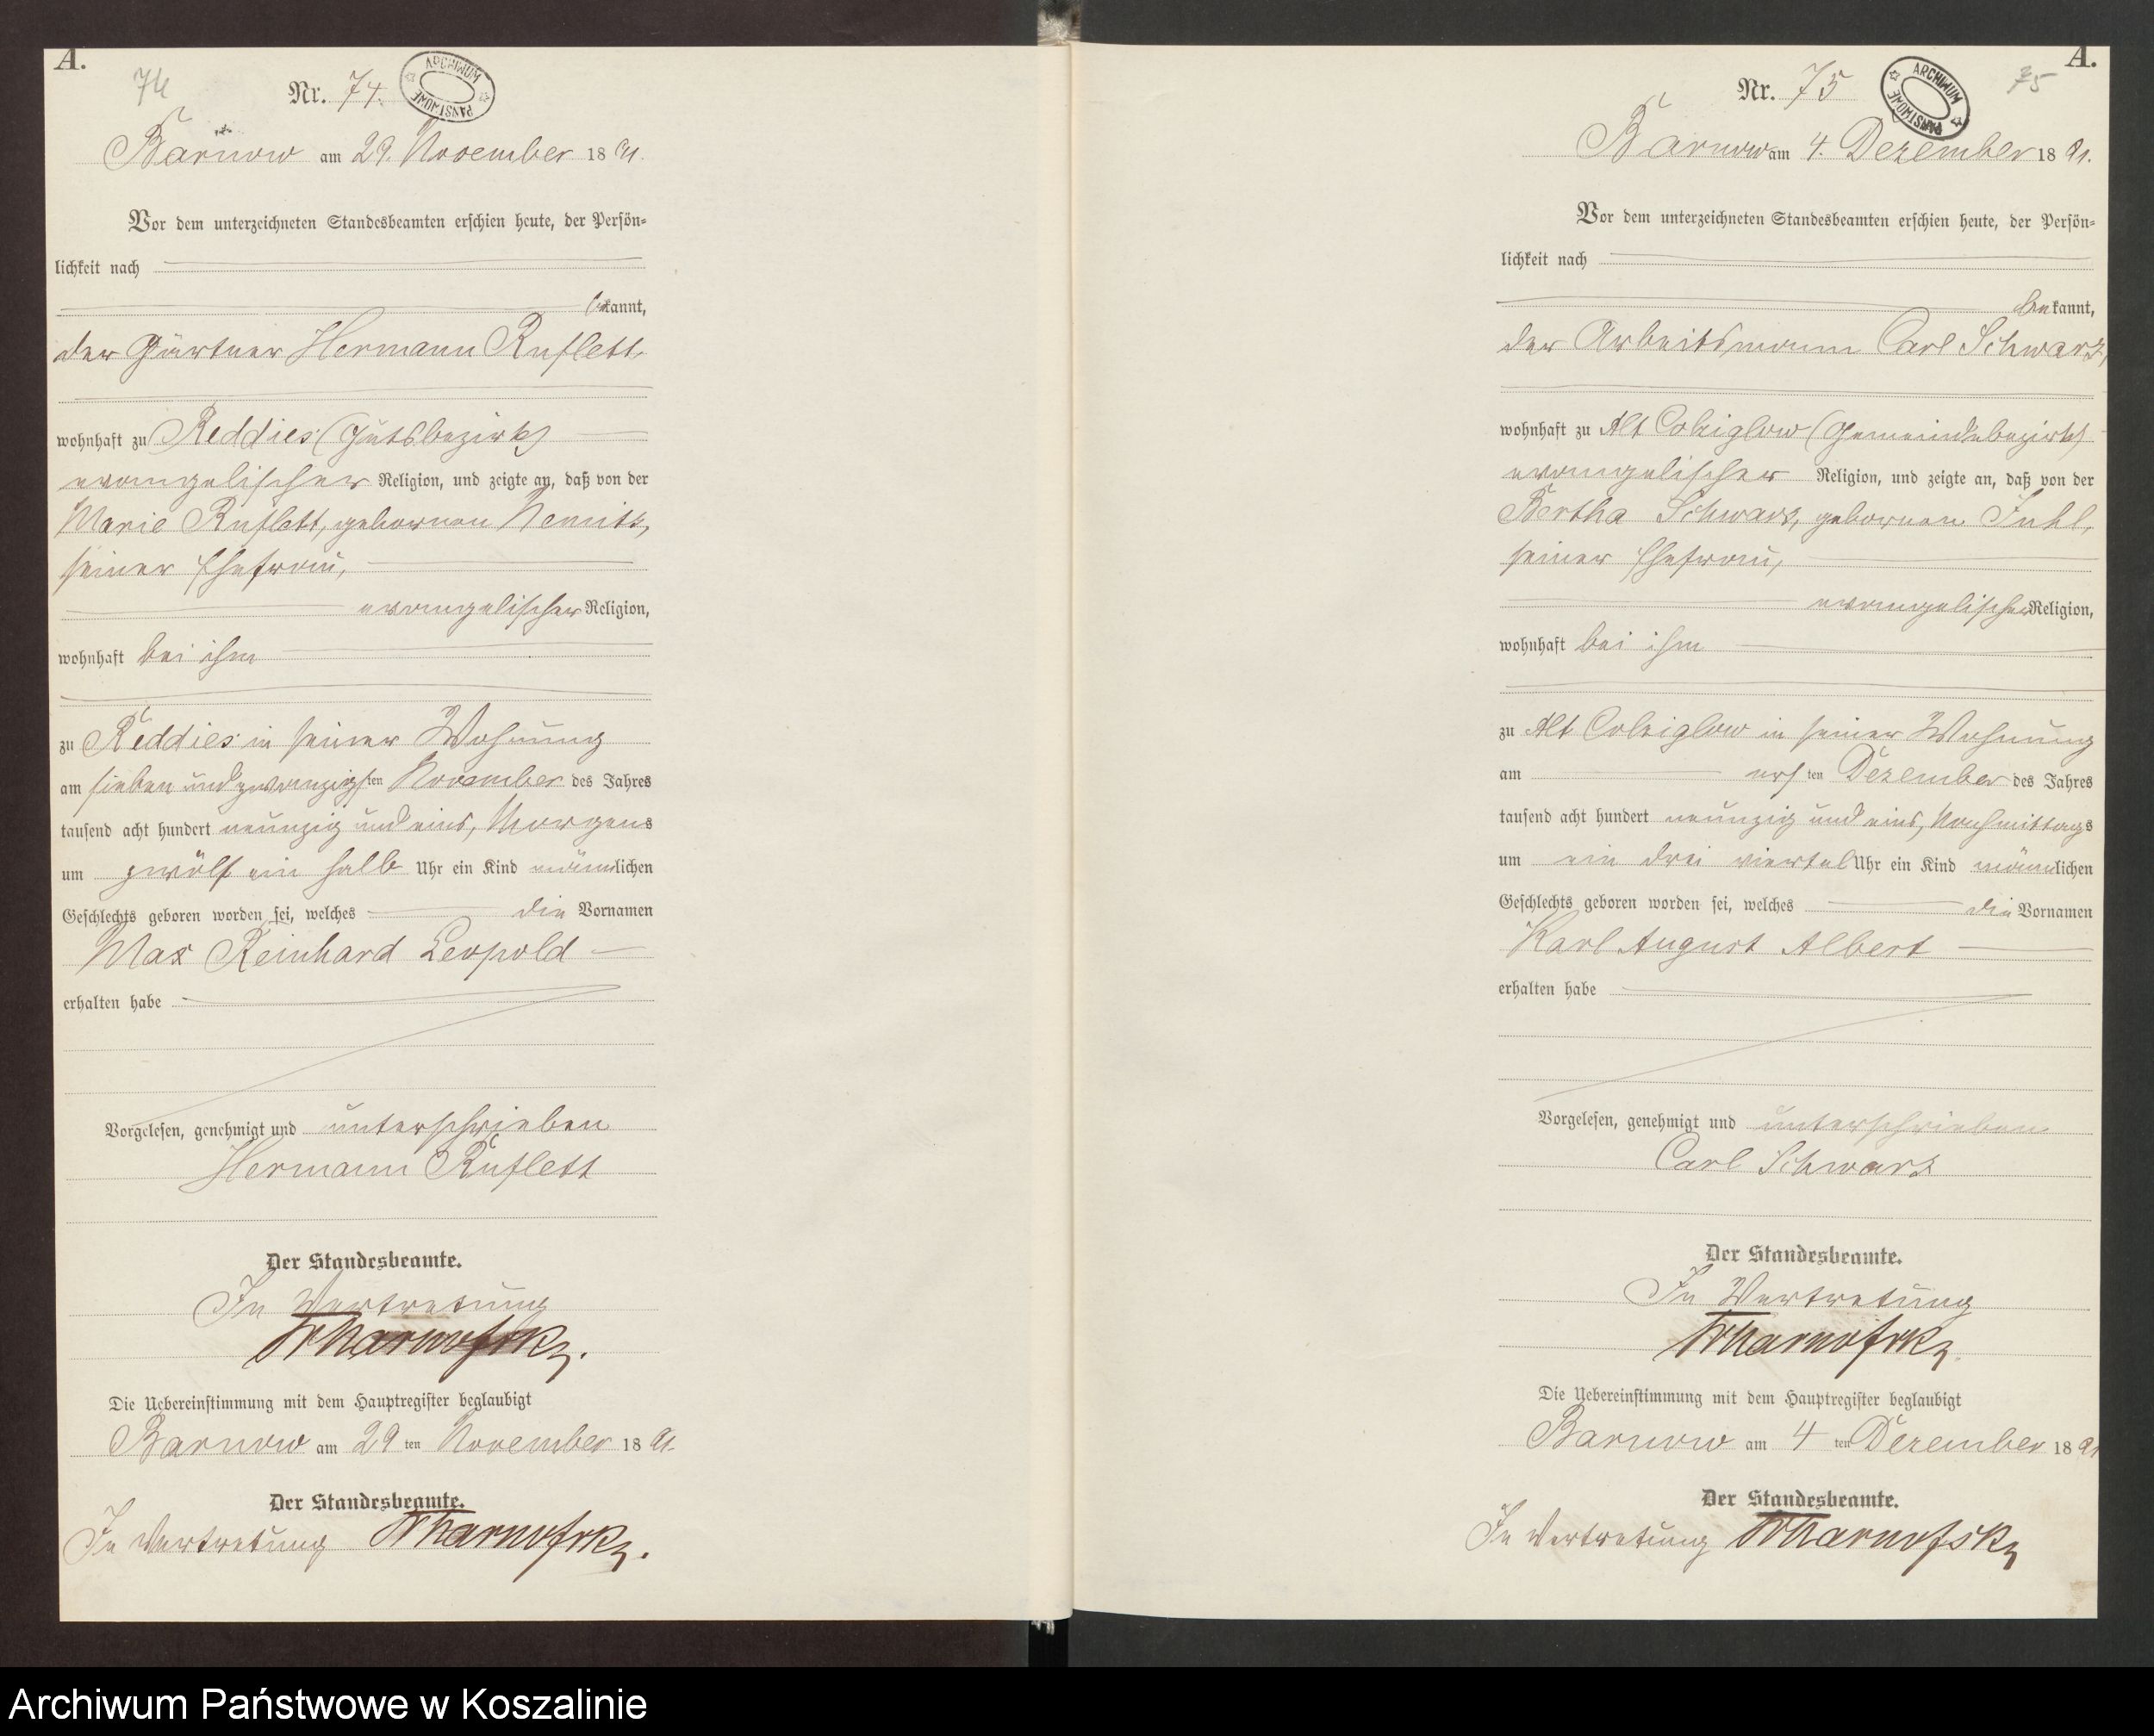 A.
74
Nr. 74.
ARCHIWUM PAŃSTWOWE
Barnow am 29. November 1891.
Vor dem unterzeichneten Standesbeamten erschien heute, der Persön-
lichkeit nach
bekannt,
der Gärtner Hermann Ruflett,
wohnhaft zu Reddies (Gutsbezirk)
evangelischer Religion, und zeigte an, daß von der
Marie Ruflett, gebornen Nemitz,
seiner Ehefrau,
evangelischer Religion,
wohnhaft bei ihm
zu Reddies in seiner Wohnung
am sieben und zwanzigsten November des Jahres
tausend acht hundert neunzig und eins, Morgens
um zwölf ein halb Uhr ein Kind männlichen
Geschlechts geboren worden sei, welches die Vornamen
Max Reinhard Leopold
erhalten habe
Vorgelesen, genehmigt und unterschrieben
Hermann Ruflett
Der Standesbeamte.
In Vertretung
Die Uebereinstimmung mit dem Hauptregister beglaubigt
Barnow am 29 ten November 1891.
Der Standesbeamte.
In Vertretung
A.
75
Nr. 75
ARCHIWUM PAŃSTWOWE
Barnow am 4. Dezember 1891.
Vor dem unterzeichneten Standesbeamten erschien heute, der Persön-
lichkeit nach
bekannt,
der Arbeitsmann Carl Schwarz,
wohnhaft zu Alt Colziglow (Gemeindebezirk)
evangelischer Religion, und zeigte an, daß von der
Bertha Schwarz, gebornen
seiner Ehefrau,
evangelischer Religion,
wohnhaft bei ihm
zu Alt Colziglow in seiner Wohnung
am ersten Dezember des Jahres
tausend acht hundert neunzig und eins, Nachmittags
um ein drei viertel Uhr ein Kind männlichen
Geschlechts geboren worden sei, welches die Vornamen
Karl August Albert
erhalten habe
Vorgelesen, genehmigt und unterschrieben
Carl Schwarz
Der Standesbeamte.
In Vertretung
Die Uebereinstimmung mit dem Hauptregister beglaubigt
Barnow am 4 ten Dezember 1891
Der Standesbeamte.
In Vertretung
Archiwum Państwowe w Koszalinie